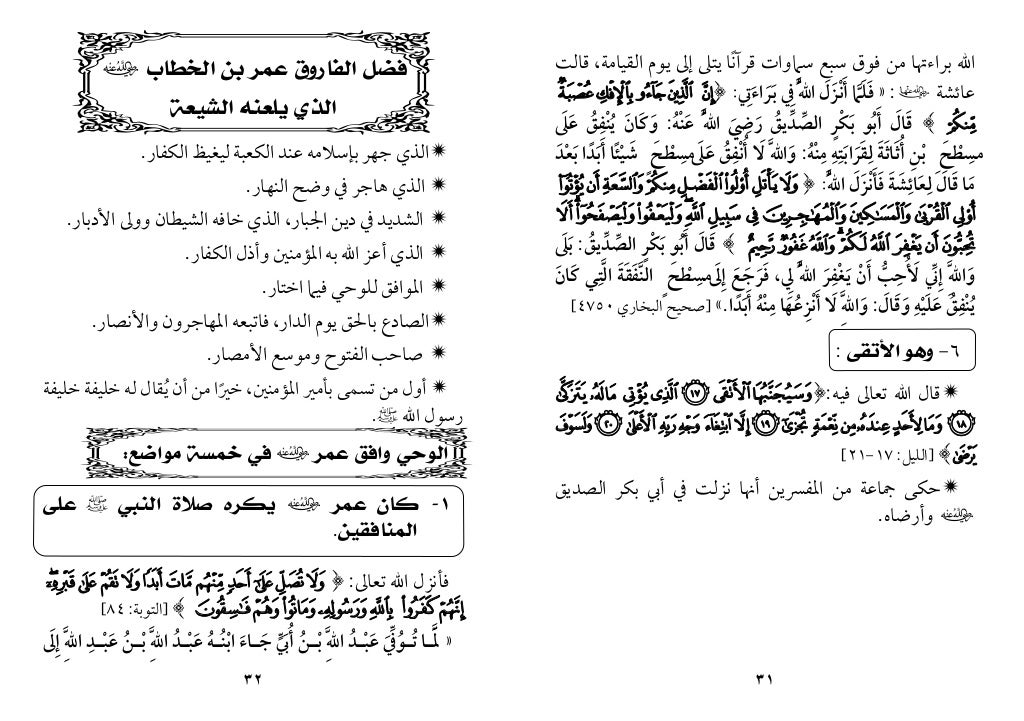 الله براءتها من فوق سبع سماوات قرآنًا يتلى إلى يوم القيامة، قالت
عائشة رضي الله عنها : « فَلَمَّا أَنْزَلَ اللهُ فِي بَرَاءَتِي: ﴿إِنَّ الَّذِينَ جَاءُو بِالْإِفْكِ عُصْبَةٌ
مِّنكُمْ ﴾ قَالَ أَبُو بَكْرٍ الصِّدِّيقُ رَضِيَ اللهُ عَنْهُ: وَكَانَ يُنْفِقُ عَلَى
مِسْطَحِ بْنِ أُثَاثَةَ لِقَرَابَتِهِ مِنْهُ: وَاللهِ لَا أُنْفِقُ عَلَى مِسْطَحٍ شَيْئًا أَبَدًا بَعْدَ
مَا قَالَ لِعَائِشَةَ فَأَنْزَلَ اللهُ: ﴿ وَلَا يَأْتَلِ أُولُوا الْفَضْلِ مِنكُمْ وَالسَّعَةِ أَن يُؤْتُوا
أُولِي الْقُرْبَى وَالْمَسَاكِينَ وَالْمُهَاجِرِينَ فِي سَبِيلِ اللَّهِ وَلْيَعْفُوا وَلْيَصْفَحُوا أَلَا
تُحِبُّونَ أَن يَغْفِرَ اللَّهُ لَكُمْ وَاللَّهُ غَفُورٌ رَّحِيمٌ ﴾ قَالَ أَبُو بَكْرٍ الصِّدِّيقُ: بَلَى
وَاللهِ إِنِّي لَأُحِبُّ أَنْ يَغْفِرَ اللهُ لِي، فَرَجَعَ إِلَى مِسْطَحٍ النَّفَقَةَ الَّتِي كَانَ
يُنْفِقُ عَلَيْهِ وَقَالَ: وَاللهِ لَا أَنْزِعُهَا مِنْهُ أَبَدًا.» [صحيح البخاري ٤٧٥٠]
٦- وهو الأتقى :
✷ قال الله تعالى فيه:﴿وَسَيُجَنَّبُهَا الْأَتْقَى ١٧ الَّذِي يُؤْتِي مَالَهُ يَتَزَكَّى
١٨ وَمَا لِأَحَدٍ عِندَهُ مِن نِّعْمَةٍ تُجْزَى ١٩ إِلَّا ابْتِغَاءَ وَجْهِ رَبِّهِ الْأَعْلَى ٢٠ وَلَسَوْفَ
يَرْضَى﴾ [الليل: ١٧-٢١]
✷ حكى جماعة من المفسرين أنها نزلت في أبي بكر الصديق
رضي الله عنه وأرضاه.
٣١
فضل الفاروق عمر بن الخطاب رضي الله عنه
الذي يلعنه الشيعة
✷ الذي جهر بإسلامه عند الكعبة ليغيظ الكفار.
✷ الذي هاجر في وضح النهار.
✷ الشديد في دين الجبار، الذي خافه الشيطان وولى الأدبار.
✷ الذي أعز الله به المؤمنين وأذل الكفار.
✷ الموافق للوحي فيما اختار.
✷ الصادع بالحق يوم الدار، فاتبعه المهاجرون والأنصار.
✷ صاحب الفتوح وموسع الأمصار.
✷ أول من تسمى بأمير المؤمنين، خيرًا من أن يُقال له خليفة خليفة
رسول الله ﷺ.
الوحي وافق عمر رضي الله عنه في خمسة مواضع:
١- كان عمر رضي الله عنه يكره صلاة النبي ﷺ على
المنافقين.
فأنزل الله تعالى: ﴿ وَلَا تُصَلِّ عَلَى أَحَدٍ مِّنْهُم مَّاتَ أَبَدًا وَلَا تَقُمْ عَلَى قَبْرِهِ
إِنَّهُمْ كَفَرُوا بِاللَّهِ وَرَسُولِهِ وَمَاتُوا وَهُمْ فَاسِقُونَ ﴾ [التوبة: ٨٤]
« لَمَّا تُوُفِّيَ عَبْدُ اللهِ بْنُ أُبَيٍّ جَاءَ ابْنُهُ عَبْدُ اللهِ بْنُ عَبْدِ اللهِ إِلَى
٣٢